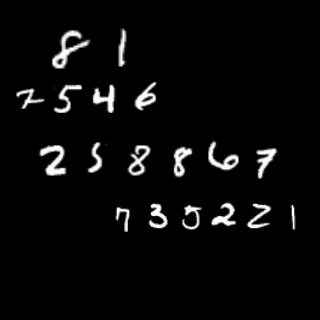 81
7546
258867
735221